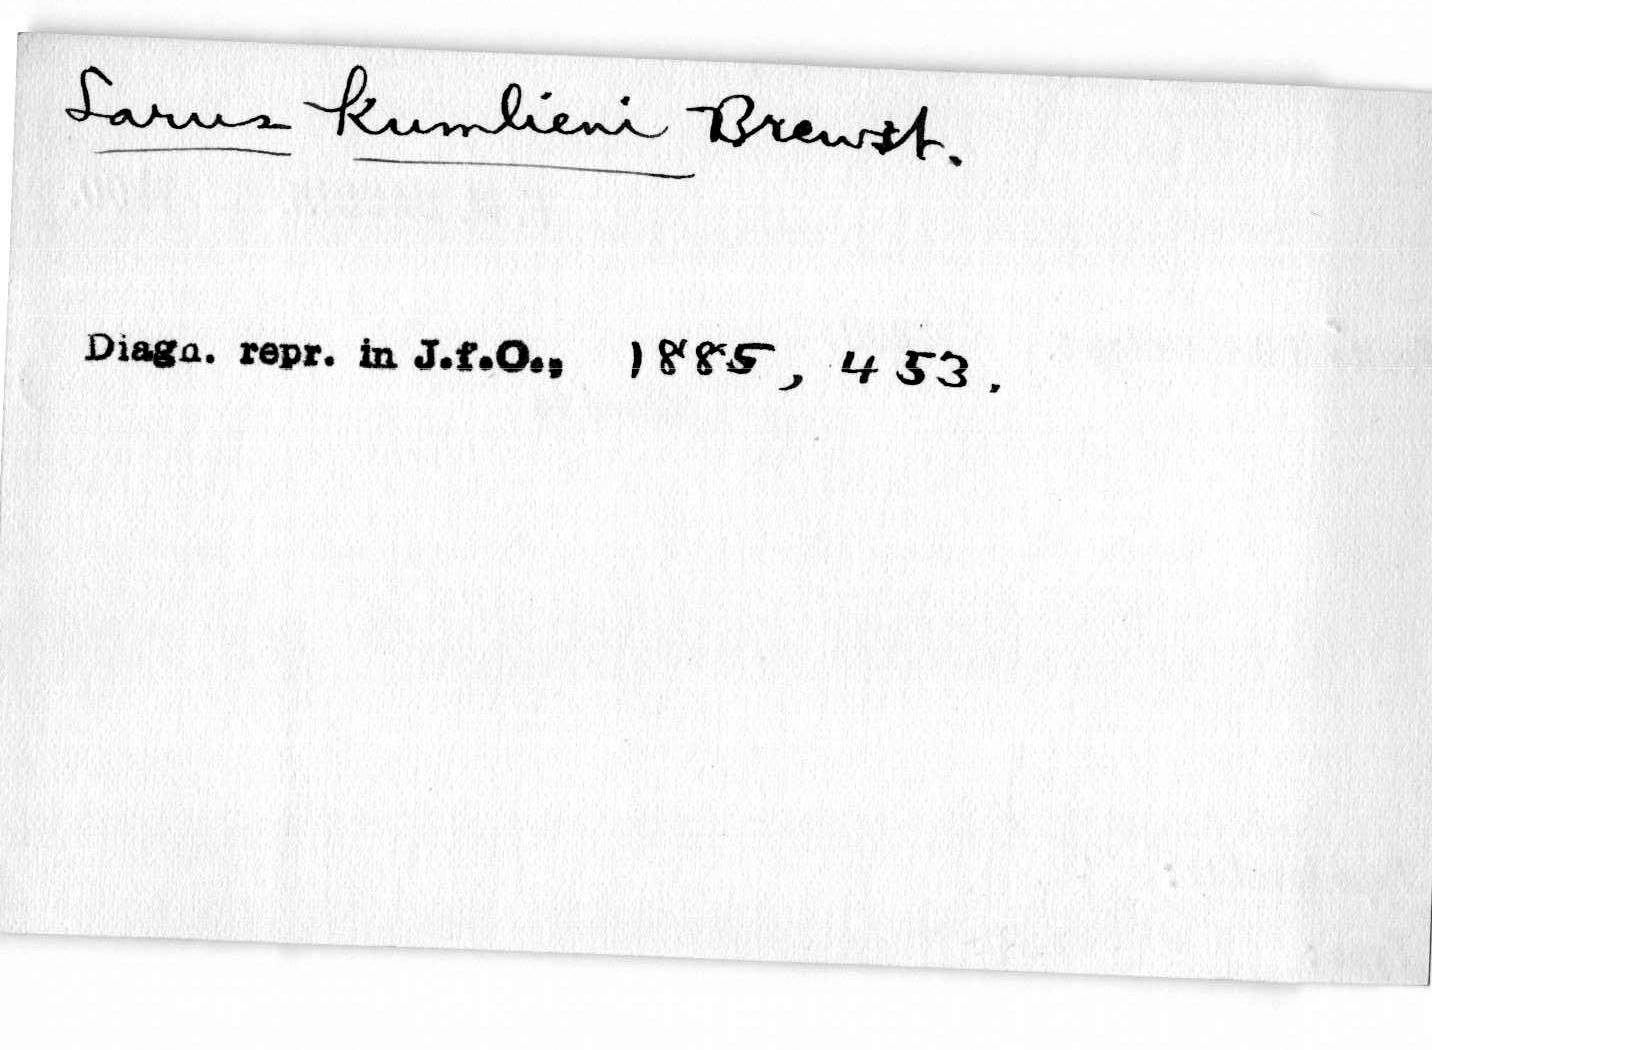 Larus kumlieni Brewst.
Diagn. repr. in J.f.O., 1885, 453.